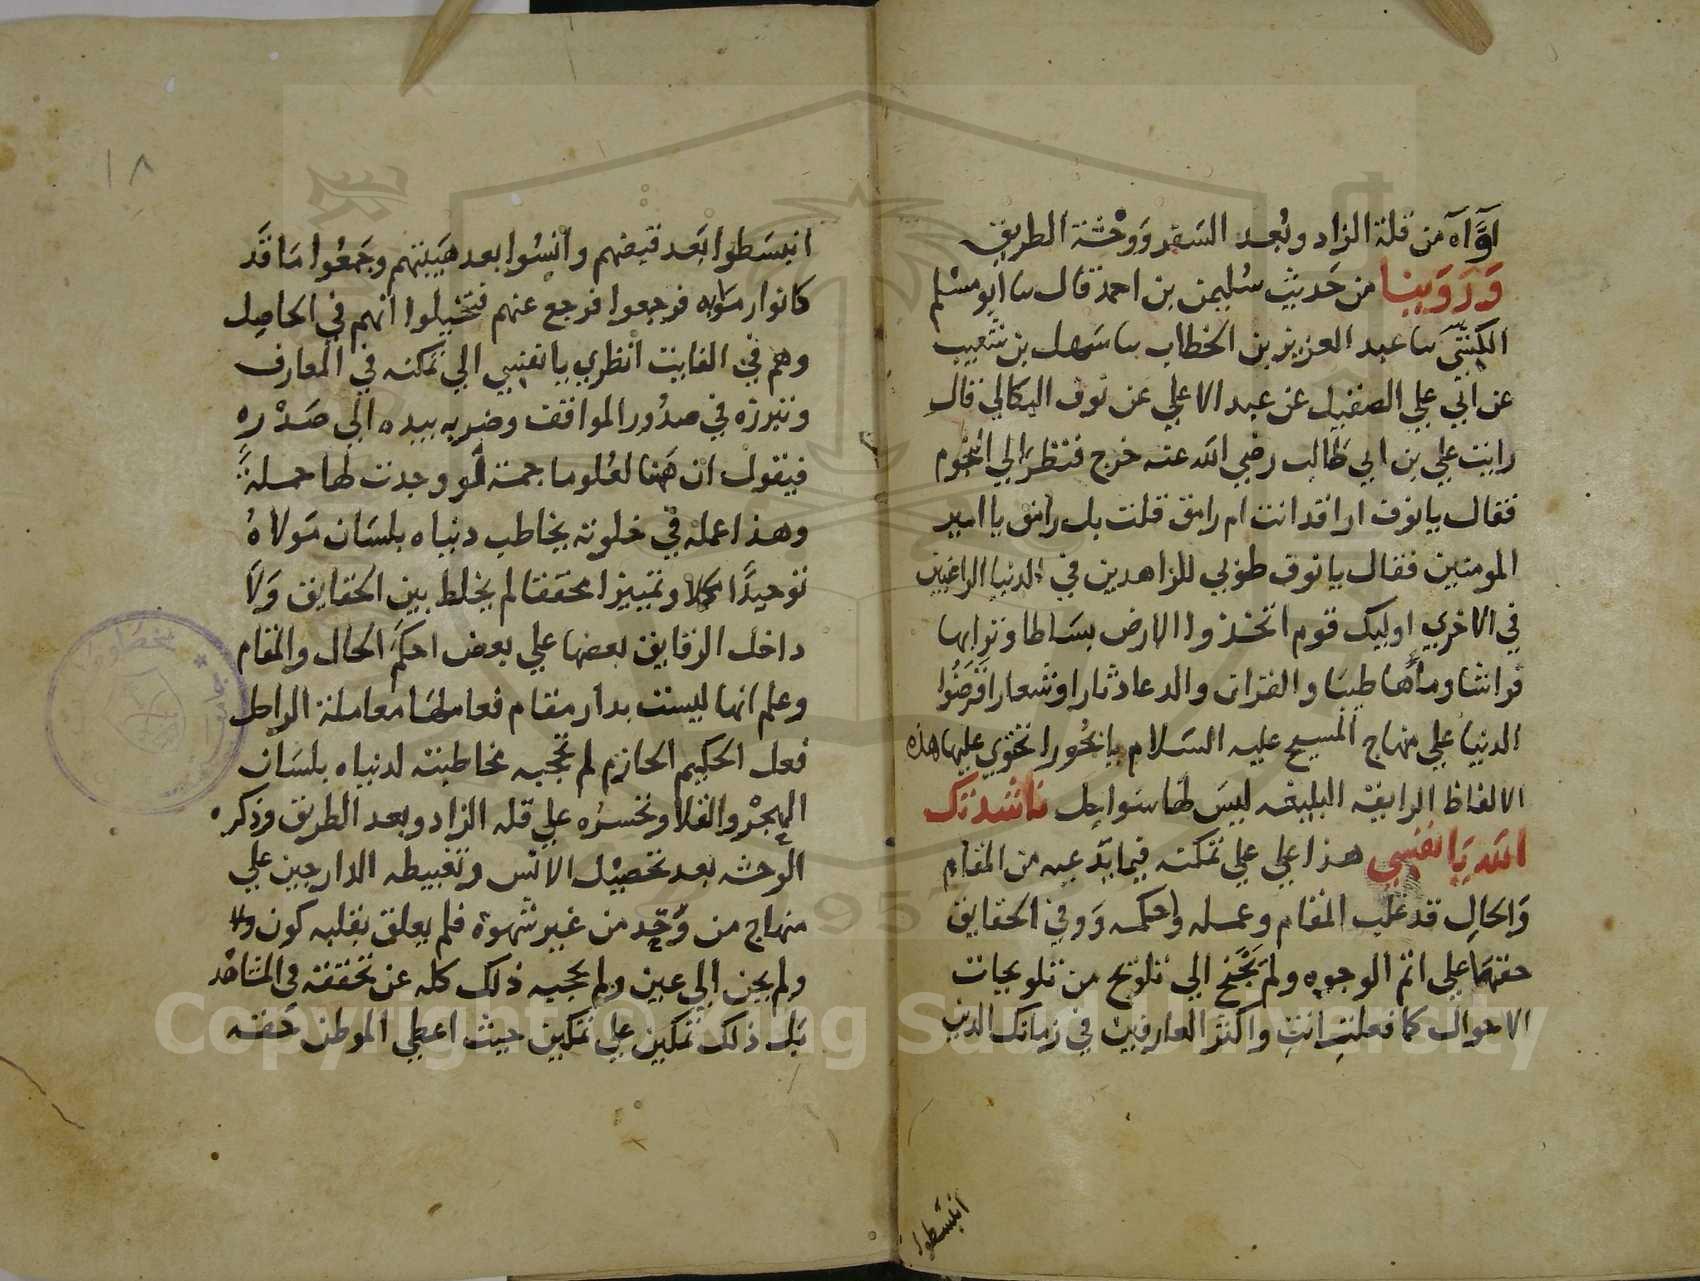 اوّاه آه من قلة الزاد وبُعد السَفر وَوحْشة الطريق
وَرَوَينا من حَديث سُليمن بن احمد قال سا ابو مسْلم
الكبشي سا عبد العزيز بن الخطاب سا سَهل بن شعيب
عن ابي علي الصقيل عن عبد الاعلي عن نوف البكالي قال
رايت علي بن ابي طالب رضي الله عنه خرج فنظر الي النجوم
فقال يا نوف اراقد انت ام رامق قلت بل رامق يا امير
المومنين فقال يا نوف طوبي للزاهدين في الدنيا الراغبين
في الاخري اوليك قوم اتخذوا الارض بسَاطا وترابها
فراشا وماها طيبَا والقران والدعا دثارا وشعارا قرضُوا
الدنيا علي منهاج المسيح عليه السَلام يا بحُورا تحتوي عليها هذه
الالفاظ الرايقه البليغه ليسَ لها سَواحل ناشدتك
الله يَا نفسي هذا علي علي تمكنه فيما يدّعيه من المقام
وَالحال قد غلب المقام وعمله واحكمه وَوفي الحقايق
حقهَا علي اتم الوجوه ولمَ يَجْنح الي تلويح من تلويحات
الاحوال كما فعلتِ انتِ واكثر العارفين في زمانك الذين
انبسَطوا
انبسَطوا بَعد قبضهم وانِسُوا بعد هَيبتهم وجَمعُوا مَا قَد
كانوا رمَوابه فرجعوا فرجع عنهم فتخيلوا انهم في الحاصِل
وهم في الفايت انظري يا نفسي الي تمكنه في المعارف
وتبرزه في صدُور المواقف وضربه بيده الي صَدْره
فيقول ان هَنا لعُلوما جمة لَو وجدت لها حملةً
وهذا عمله في خلوته يخاطب دنياه بلسَان مَولاهُ
توحيدًا كملا وتمييزا محققا لم يخلط بين الحقايق وَلاَ
داخل الرقايق بعضها علي بعض احكمَ الحال والمقام
وعلم انها ليست بدار مقام فعاملهَا معاملة الراحل
فعل الحكيم الحازم لم تحجبه مخاطبته لدنياه بلسَان
الهجرْ والقلا وتحسرُه علي قله الزاد وبعد الطريق وذكره
الوحشه بعد تحصيْل الانس وتغبيطه الدارجين علي
منهاج من وُجِد من غير شهوة فلم يعلق بقلبه كون ولا
ولم يحن الي عين ولم يحجبه ذلك كله عن تحققه في المشاهد
بَل ذلك تمكين علي تمكين حيث اعطي الموطن حَقه
١٨
Copyright © King Saud University
1957